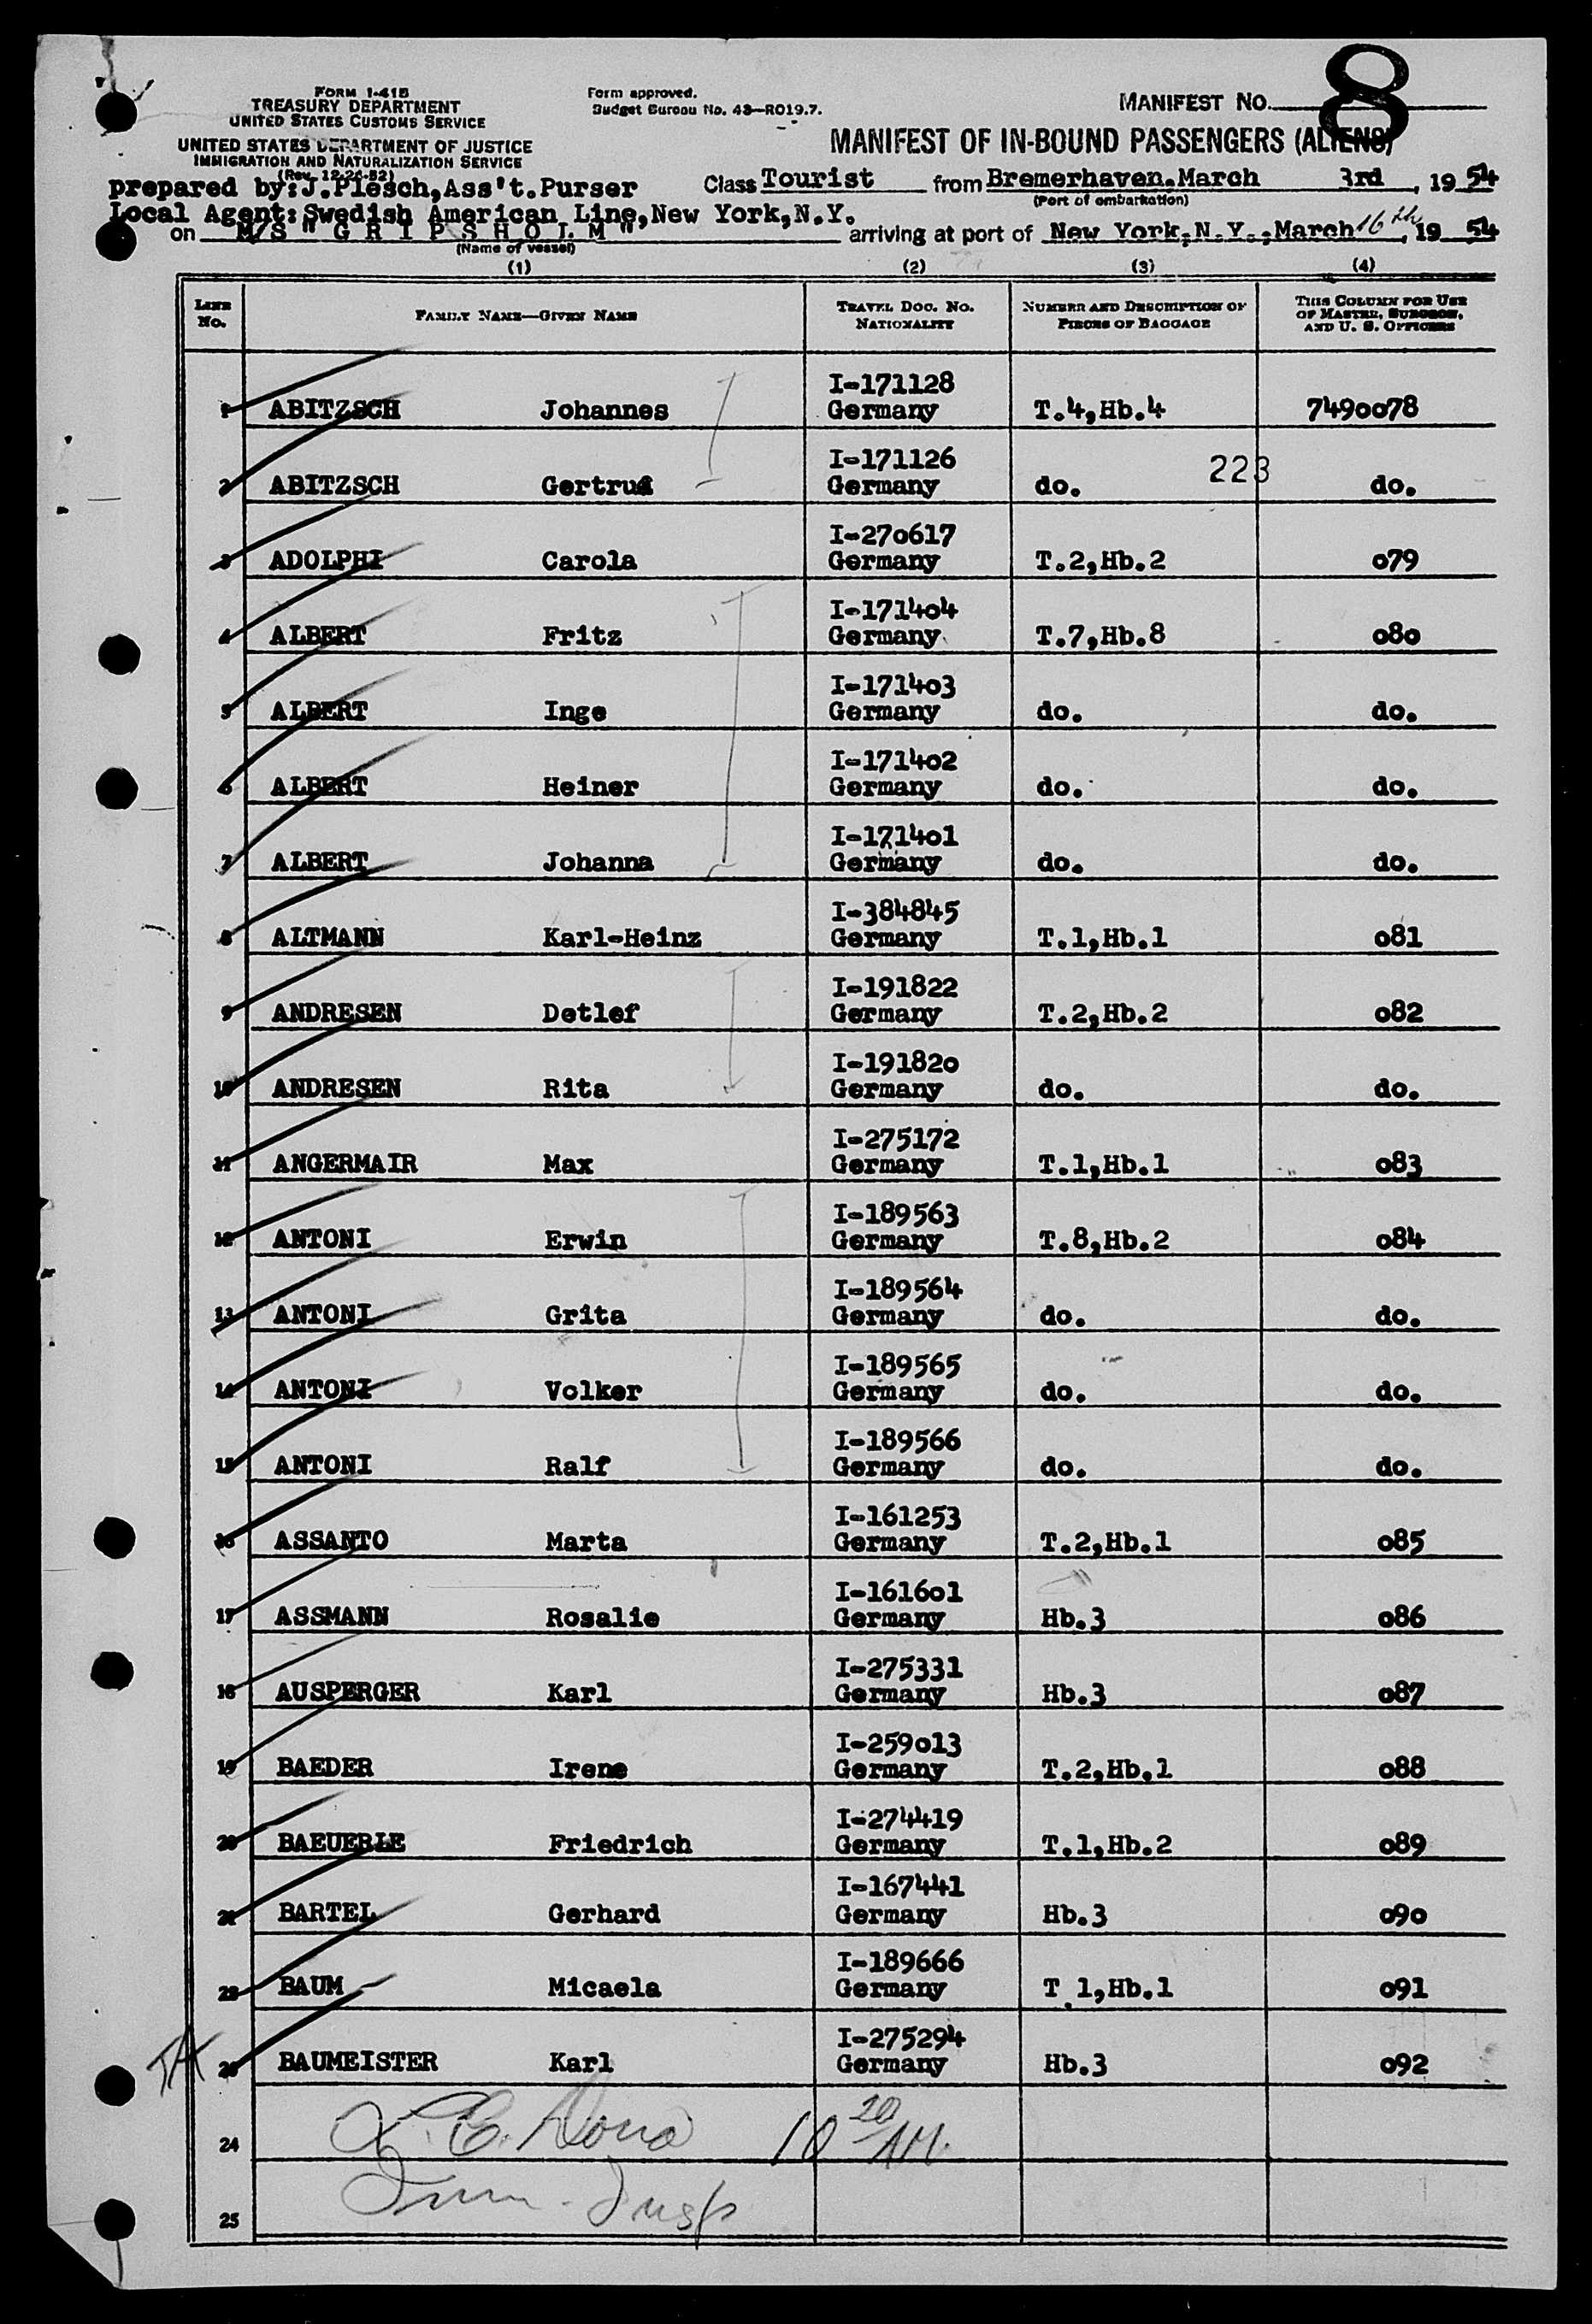 8
FORM I-415
TREASURY DEPARTMENT
UNITED STATES CUSTOMS SERVICE
UNITED STATES DEPARTMENT OF JUSTICE
IMMIGRATION AND NATURALIZATION SERVICE
(Rev. 12-24-52)
Form approved.
Budget Bureau No. 43—RO19.7.
MANIFEST NO.
MANIFEST OF IN-BOUND PASSENGERS (ALIENS)
prepared by:J.Plesch,Ass't.Purser
Class Tourist from Bremerhaven.March 3rd, 1954
(Port of embarkation)
Local Agent:Swedish American Line,New York,N.Y.
on M/S "G R I P S H O L M" arriving at port of New York,N.Y.,March 16th, 19 54
(Name of vessel)
(1) (2) (3) (4)
LINE No. FAMILY NAME—GIVEN NAME TRAVEL DOC. NO. NATIONALITY NUMBER AND DESCRIPTION OF PIECES OF BAGGAGE THIS COLUMN FOR USE OF MASTER, SURGEON, AND U. S. OFFICERS
I-171128
1 ABITZSCH Johannes Germany T.4,Hb.4 7490078
I-171126 223
2 ABITZSCH Gertrud Germany do. do.
I-270617
3 ADOLPHI Carola Germany T.2,Hb.2 079
I-171404
4 ALBERT Fritz Germany T.7,Hb.8 080
I-171403
5 ALBERT Inge Germany do. do.
I-171402
6 ALBERT Heiner Germany do. do.
I-171401
7 ALBERT Johanna Germany do. do.
I-384845
8 ALTMANN Karl-Heinz Germany T.1,Hb.1 081
I-191822
9 ANDRESEN Detlef Germany T.2,Hb.2 082
I-191820
10 ANDRESEN Rita Germany do. do.
I-275172
11 ANGERMAIR Max Germany T.1,Hb.1 083
I-189563
12 ANTONI Erwin Germany T.8,Hb.2 084
I-189564
13 ANTONI Grita Germany do. do.
I-189565
14 ANTONI Volker Germany do. do.
I-189566
15 ANTONI Ralf Germany do. do.
I-161253
16 ASSANTO Marta Germany T.2,Hb.1 085
I-161601
17 ASSMANN Rosalie Germany Hb.3 086
I-275331
18 AUSPERGER Karl Germany Hb.3 087
I-259013
19 BAEDER Irene Germany T.2,Hb.1 088
I-274419
20 BAEUERLE Friedrich Germany T.1,Hb.2 089
I-167441
21 BARTEL Gerhard Germany Hb.3 090
I-189666
22 BAUM Micaela Germany T.1,Hb.1 091
I-275294
23 BAUMEISTER Karl Germany Hb.3 092
24 10 20 AM.
25 Imm. Insp